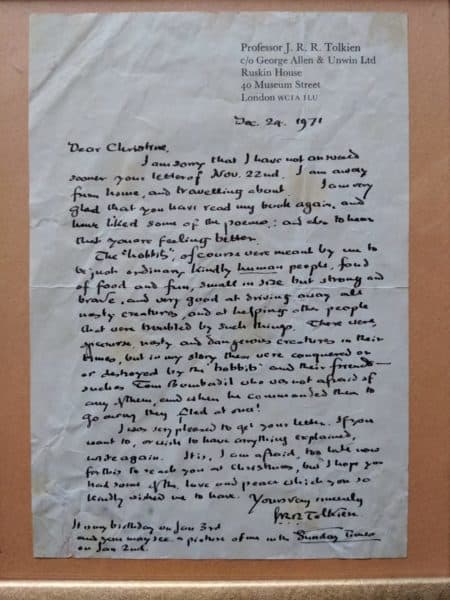 Professor J. R. R. Tolkien
c/o George Allen & Unwin Ltd
Ruskin House
40 Museum Street
London WC1A 1LU
Dec. 24. 1971
Dear Christine,
I am sorry that I have not answered
sooner your letter of Nov. 22nd. I am away
from home, and travelling about I am very
glad that you have read my book again, and
have liked some of the poems; and also to hear
that you are feeling better.
The "hobbits", of course were meant by me to
be just ordinary kindly human people, fond
of food and fun, small in size but strong and
brave, and very good at driving away all
nasty creatures, and at helping other people
that were troubled by such things. There were
of course, nasty and dangerous creatures in their
times, but in my story these were conquered or
or destroyed by the 'hobbits' and their friends —
such as Tom Bombadil who was not afraid of
any of them, and when he commanded them to
go away they fled at once!
I was very pleased to get your letter. If you
want to, or wish to have anything explained,
write again. It is, I am afraid, too late now
for this to reach you at Christmas, but I hope you
had some of the love and peace which you so
kindly wished me to have. Yours very sincerely
JRR Tolkien
It is my birthday on Jan 3rd
and you may see a picture of me in the Sunday Times
on Jan 2nd.